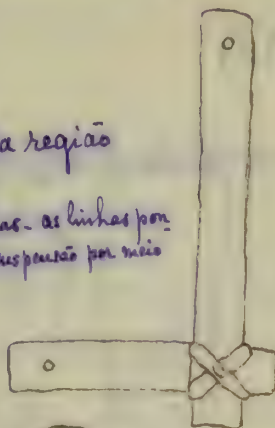 a região
as - as linhas pon
suspensão por meio